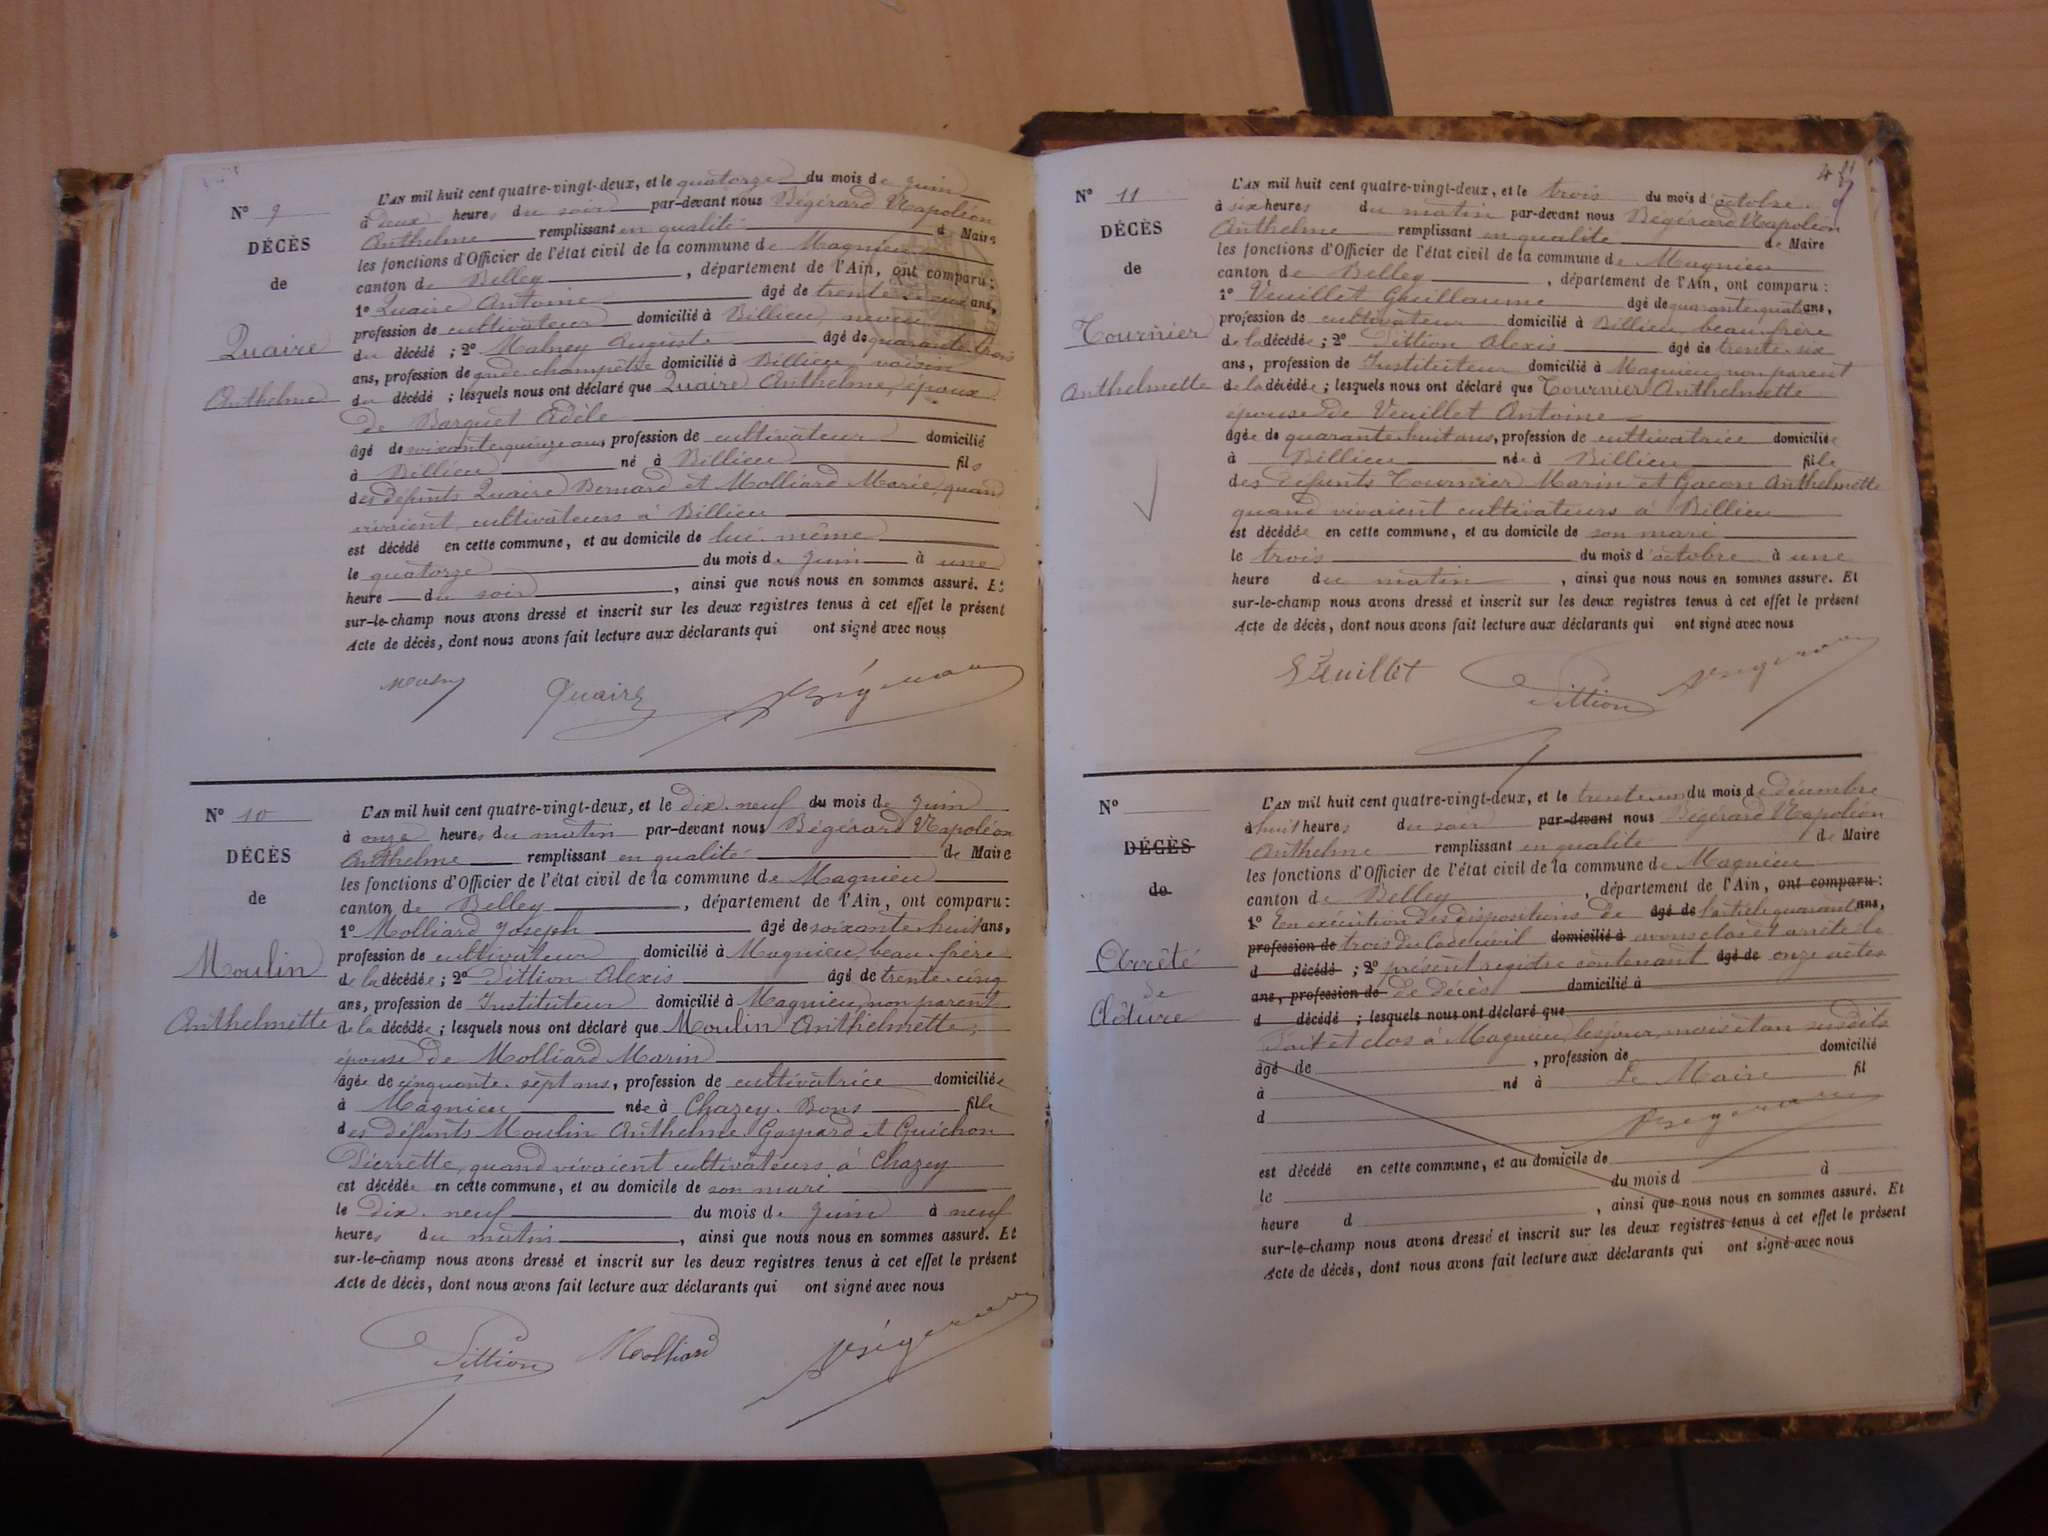 N° 9
DÉCÈS
de
Quaire
Anthelme
L'AN mil huit cent quatre-vingt-deux, et le quatorze du mois de juin
à deux heures du soir par-devant nous Bégérard Napoléon
Anthelme remplissant en qualité de Maire
les fonctions d'Officier de l'état civil de la commune de Magnieu
canton de Belley, département de l'Ain, ont comparu :
1° Quaire Antoine âgé de trente deux ans,
profession de cultivateur domicilié à Billieu, neveu
du décédé ; 2° Auguste âgé de quarante trois
ans, profession de garde-champêtre domicilié à Billieu voisin
du décédé ; lesquels nous ont déclaré que Quaire Anthelme, époux
de Barquet Adèle
âgé de soixante quinze ans, profession de cultivateur domicilié
à Billieu né à Billieu fils
des défunts Quaire Bernard et Molliard Marie, quand
vivaient cultivateurs à Billieu
est décédé en cette commune, et au domicile de lui-même
le quatorze du mois de juin à une
heure du soir, ainsi que nous nous en sommes assuré. Et
sur-le-champ nous avons dressé et inscrit sur les deux registres tenus à cet effet le présent
Acte de décès, dont nous avons fait lecture aux déclarants qui ont signé avec nous
Quaire Bégérard
N° 10
DÉCÈS
de
Moulin
Anthelmette
L'AN mil huit cent quatre-vingt-deux, et le dix-neuf du mois de juin
à onze heures du matin par-devant nous Bégérard Napoléon
Anthelme remplissant en qualité de Maire
les fonctions d'Officier de l'état civil de la commune de Magnieu
canton de Belley, département de l'Ain, ont comparu :
1° Molliard Joseph âgé de soixante huit ans,
profession de cultivateur domicilié à Magnieu, beau-frère
de la décédée ; 2° Sittion Alexis âgé de trente-cinq
ans, profession de Instituteur domicilié à Magnieu, non parent
de la décédée ; lesquels nous ont déclaré que Moulin Anthelmette,
épouse de Molliard Marin
âgée de cinquante-sept ans, profession de cultivatrice domiciliée
à Magnieu née à Chazey-Bons fille
des défunts Moulin Anthelme Gaspard et Guichon
Pierrette, quand vivaient cultivateurs à Chazey
est décédée en cette commune, et au domicile de son mari
le dix-neuf du mois de juin à neuf
heures du matin, ainsi que nous nous en sommes assuré. Et
sur-le-champ nous avons dressé et inscrit sur les deux registres tenus à cet effet le présent
Acte de décès, dont nous avons fait lecture aux déclarants qui ont signé avec nous
Sittion Molliard Bégérard
N° 11
DÉCÈS
de
Tournier
Anthelmette
L'AN mil huit cent quatre-vingt-deux, et le trois du mois d'octobre
à six heures du matin par-devant nous Bégérard Napoléon
Anthelme remplissant en qualité de Maire
les fonctions d'Officier de l'état civil de la commune de Magnieu
canton de Belley, département de l'Ain, ont comparu :
1° Veuillet Guillaume âgé de quarante quatre ans,
profession de cultivateur domicilié à Billieu, beau-frère
de la décédée ; 2° Sittion Alexis âgé de trente-six
ans, profession de Instituteur domicilié à Magnieu, non parent
de la décédée ; lesquels nous ont déclaré que Tournier Anthelmette
épouse de Veuillet Antoine
âgée de quarante huit ans, profession de cultivatrice domiciliée
à Billieu née à Billieu fille
des défunts Tournier Marin et Gacon Anthelmette
quand vivaient cultivateurs à Billieu
est décédée en cette commune, et au domicile de son mari
le trois du mois d'octobre à une
heure du matin, ainsi que nous nous en sommes assuré. Et
sur-le-champ nous avons dressé et inscrit sur les deux registres tenus à cet effet le présent
Acte de décès, dont nous avons fait lecture aux déclarants qui ont signé avec nous
Veuillet Sittion Bégérard
N°
DÉCÈS
de
Arrêté
de
Clôture
L'AN mil huit cent quatre-vingt-deux, et le trente-un du mois de décembre
à huit heures du soir par-devant nous Bégérard Napoléon
Anthelme remplissant en qualité de Maire
les fonctions d'Officier de l'état civil de la commune de Magnieu
canton de Belley, département de l'Ain, ont comparu :
1° En exécution des dispositions de âgé de l'article quarante ans,
profession de trois du Code civil domicilié à avons clos et arrêté le
d décédé ; 2° présent registre contenant âgé de onze actes
ans, profession de de décès domicilié à
d décédé ; lesquels nous ont déclaré que
Fait et clos à Magnieu, les jour, mois et an susdits
âgé de , profession de domicilié
à né à Le Maire fil
d Bégérard
est décédé en cette commune, et au domicile de
le du mois d à
heure d , ainsi que nous nous en sommes assuré. Et
sur-le-champ nous avons dressé et inscrit sur les deux registres tenus à cet effet le présent
Acte de décès, dont nous avons fait lecture aux déclarants qui ont signé avec nous